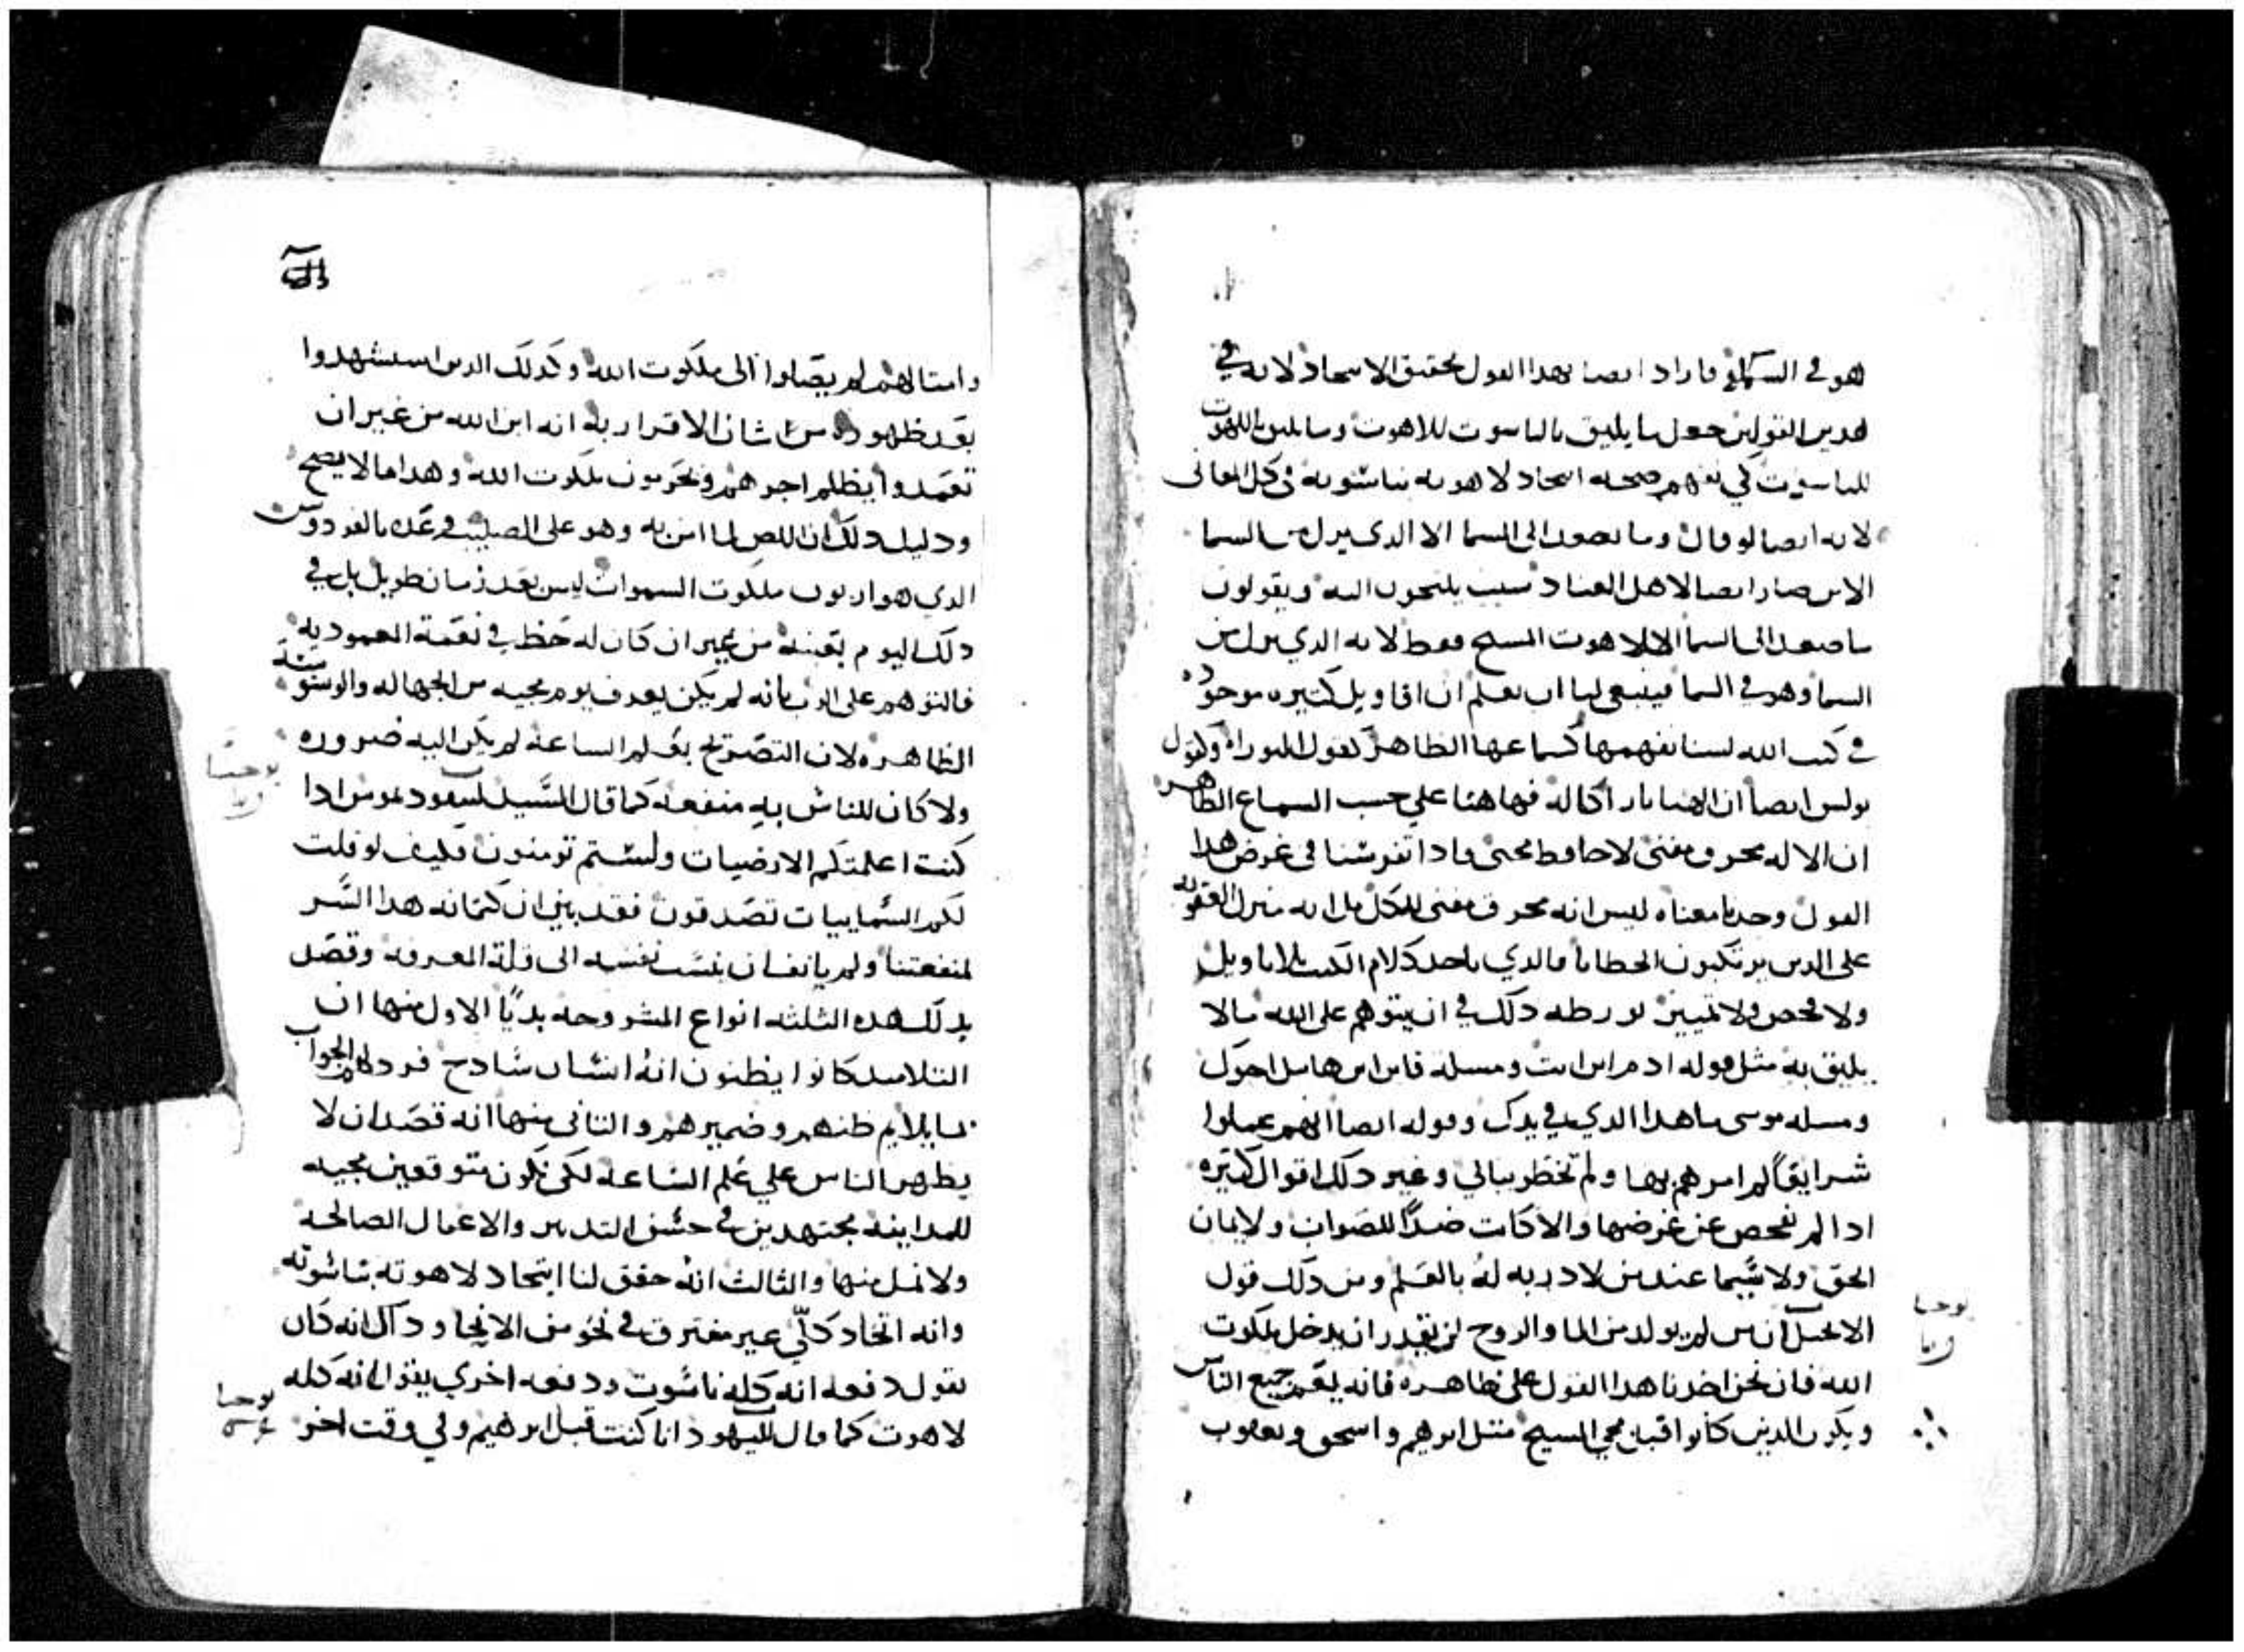 هو في السما فاراد ايضا بهدا القول تحقيق الاتحاد لانه في
هدين القولين جعل ما يليق بالناسوت للاهوت وما يليق باللاهوت
للناسوت كي نفهم صحه اتحاد لاهوته بناسوته في كل المعاني
لانه ايضا لو قال وما يصعد الي السما الا الدي نزل من السما
الابن صار ايضا لاهل العناد سبب يلتجون اليه ويقولون
ما صعد الى السما الا لاهوت المسيح فقط لانه الدي نزل من
السما وهو في السما فينبغي لنا ان نعلم ان اقاويل كتيره موجوده
في كتب الله لسنا نفهمها كسماعها الظاهر كقول التوراه وكقول
بولس ايضا ان الاهنا نار اكاله فها هنا علي حسب السماع الظاهر
ان الاله محرق مفني لا حافظ محيي وادا تفرسنا في غرض هدا
القول وجدنا معناه ليس انه محرق مفني للكل بل انه منزل العقوبه
على الدين يرتكبون الخطايا فالدي ياخد كلام الكتب بلا تاويل
ولا فحص ولا تمييز تورطه دلك في ان يتوهم على الله ما لا
يليق به مثل قوله ادم اين انت ومسلة قاين اين هابيل اخوك
ومسله موسى ما هدا الدي في يدك وقوله ايضا انهم عملوا
شرايعا لم امرهم بها ولم تخطر ببالي وغير دلك اقوال كتيره
ادا لم نفحص عن غرضها والا كانت ضدا للصواب ولايمان
الحق ولا سيما عند من لا دربه له بالعلم ومن دلك قول
الانجيل ان من لم يولد من الما والروح لن يقدر ان يدخل ملكوت
الله فان نحن اخدنا هدا القول على ظاهره فانه يعم جميع الناس
ويكون الدين كانوا قبل مجي المسيح متل ابرهيم واسحق ويعقوب
يوحنا
وامتالهم لم يصلوا الى ملكوت الله وكدلك الدين استشهدوا
بعد ظهوره من شان الاقرار به انه ابن الله من غير ان
تعمدوا يظلم اجرهم ويحرمون ملكوت الله وهدا ما لا يصح
ودليل دلك ان اللص لما امن به وهو على الصليب وعده بالفردوس
الدي هو اربون ملكوت السموات ليس بعد زمان طويل بل في
دلك اليوم بعينه من غير ان كان له حظ في نعمة المعموديه
فالتوهم على الرب بانه لم يكن يعرف يوم مجيه من الجهاله والوسوسة
الظاهره لان التصريح بعلم الساعه لم يكن اليه ضروره
ولا كان للناس به منفعه كما قال السيد لنيقوديموس ادا
كنت اعلمتكم الارضيات ولستم تومنون فكيف لو قلت
لكم السماييات تصدقون فقد بين ان كتمانه هدا السر
لمنفعتنا ولم يانف ان ينسب نفسه الى قلة المعرفه وقصد
بدلك هده الثلثه انواع المشروحه بديا الاول منها ان
التلاميد كانوا يظنون انه انسان سادج فرد لهم الجواب
بما يلايم ظنهم وضميرهم والتاني منها انه قصد ان لا
يظهر الناس علي علم الساعه لكي نكون متوقعين مجيه
للمداينه مجتهدين في حسن التدبير والاعمال الصالحه
ولا نمل منها والثالث انه حقق لنا اتحاد لاهوته بناسوته
وانه اتحاد كلي غير مفترق في نحو من الانحا ود اك انه كان
يقول دفعه انه كله ناسوت ودفعه اخري يقول انه كله
لاهوت كما قال لليهود انا كنت قبل ابرهيم وفي وقت اخر
يوحنا
يوحنا